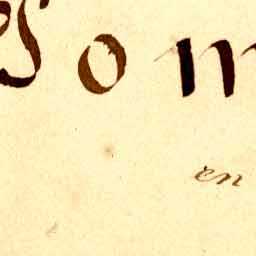 Tom
en